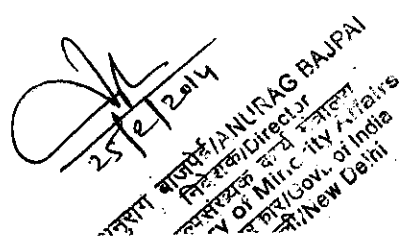 25/2/2014
अनुराग बाजपेई/ANURAG BAJPAI
निदेशक/Director
कार्य मंत्रालय
of Minority Affairs
सरकार/Govt. of India
New Delhi